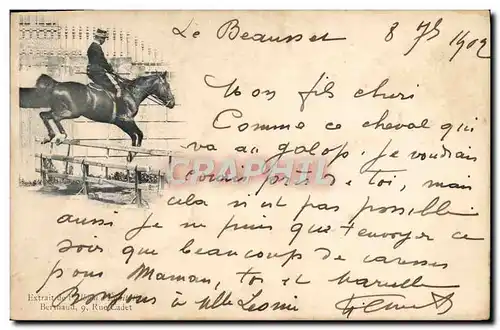 Le Beausset 8 7bre 1902
Mon fils chéri
Comme ce cheval qui
va au galop, je voudrais
CPARAMA
courir près de toi, mais
cela n'est pas possible
aussi je ne puis que t'envoyer ce
soir que beaucoup de caresses
pour Maman, toi et Marcelle
Bonjour à Mlle Léonie
Extrait de
Berthaud, 9, Rue Cadet